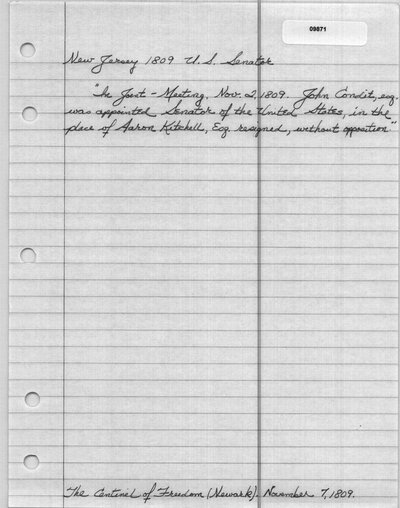 09871
New Jersey 1809 U. S. Senator
"In Joint-Meeting, Nov. 2, 1809. John Condit, esq.
was appointed Senator of the United States, in the
place of Aaron Kitchell, Esq. resigned, without opposition"
The Centinel of Freedom (Newark). November 7, 1809.